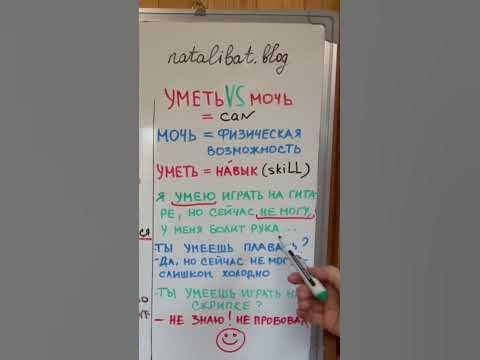 natalibat.blog
УМЕТЬ VS МОЧЬ
= CAN
МОЧЬ = ФИЗИЧЕСКАЯ
ВОЗМОЖНОСТЬ
УМЕТЬ = НА́ВЫК (skiLL)
Я УМЕЮ ИГРАТЬ НА ГИТА-
РЕ, НО СЕЙЧАС НЕ МОГУ,
У МЕНЯ БОЛИТ РУКА...
-ТЫ УМЕЕШЬ ПЛАВА ?
-ДА, НО СЕЙЧАС НЕ МОГ
СЛИШКОМ ХОЛОДНО
-ТЫ УМЕЕШЬ ИГРАТЬ НА
СКРИПКЕ?
- НЕ ЗНАЮ! НЕ ПРОБОВА